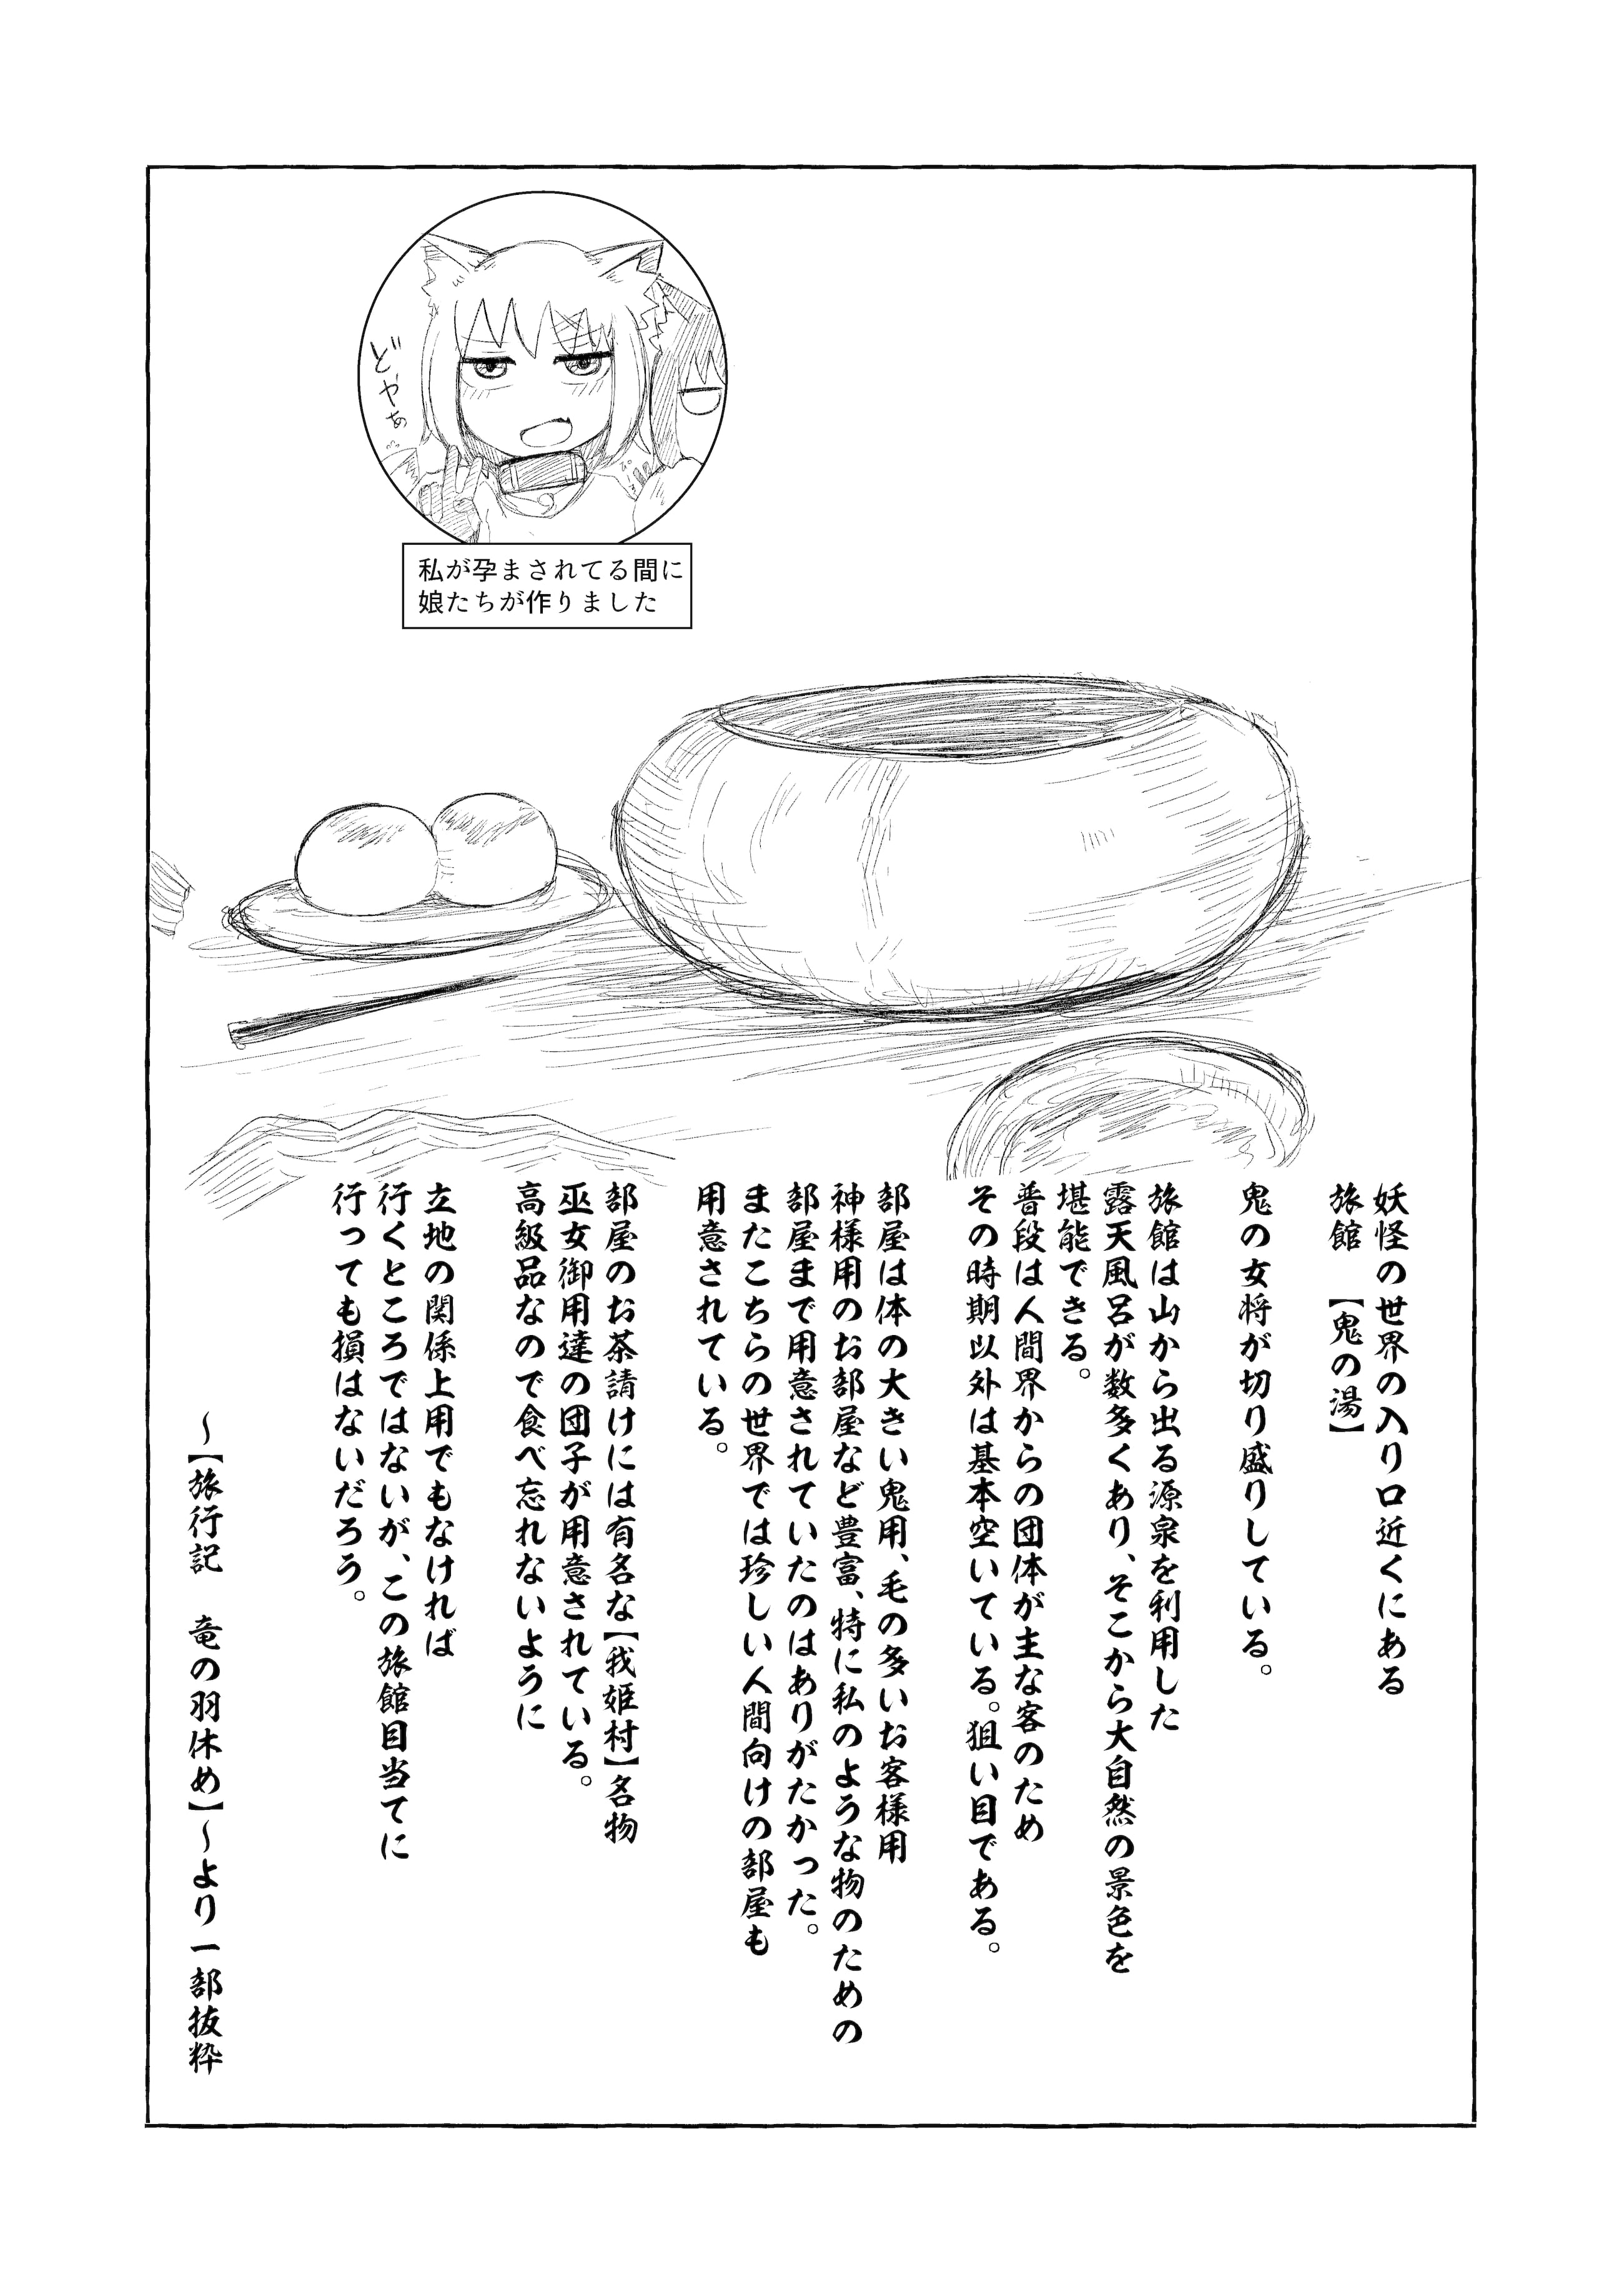 どやぁ
私が孕まされてる間に
娘たちが作りました
妖怪の世界の入り口近くにある
旅館 【鬼の湯】
鬼の女将が切り盛りしている。
旅館は山から出る源泉を利用した
露天風呂が数多くあり、そこから大自然の景色を
堪能できる。
普段は人間界からの団体が主な客のため
その時期以外は基本空いている。狙い目である。
部屋は体の大きい鬼用、毛の多いお客様用
神様用のお部屋など豊富、特に私のような物のための
部屋まで用意されていたのはありがたかった。
またこちらの世界では珍しい人間向けの部屋も
用意されている。
部屋のお茶請けには有名な【我姫村】名物
巫女御用達の団子が用意されている。
高級品なので食べ忘れないように
立地の関係上用でもなければ
行くところではないが、この旅館目当てに
行っても損はないだろう。
～【旅行記 竜の羽休め】～より一部抜粋